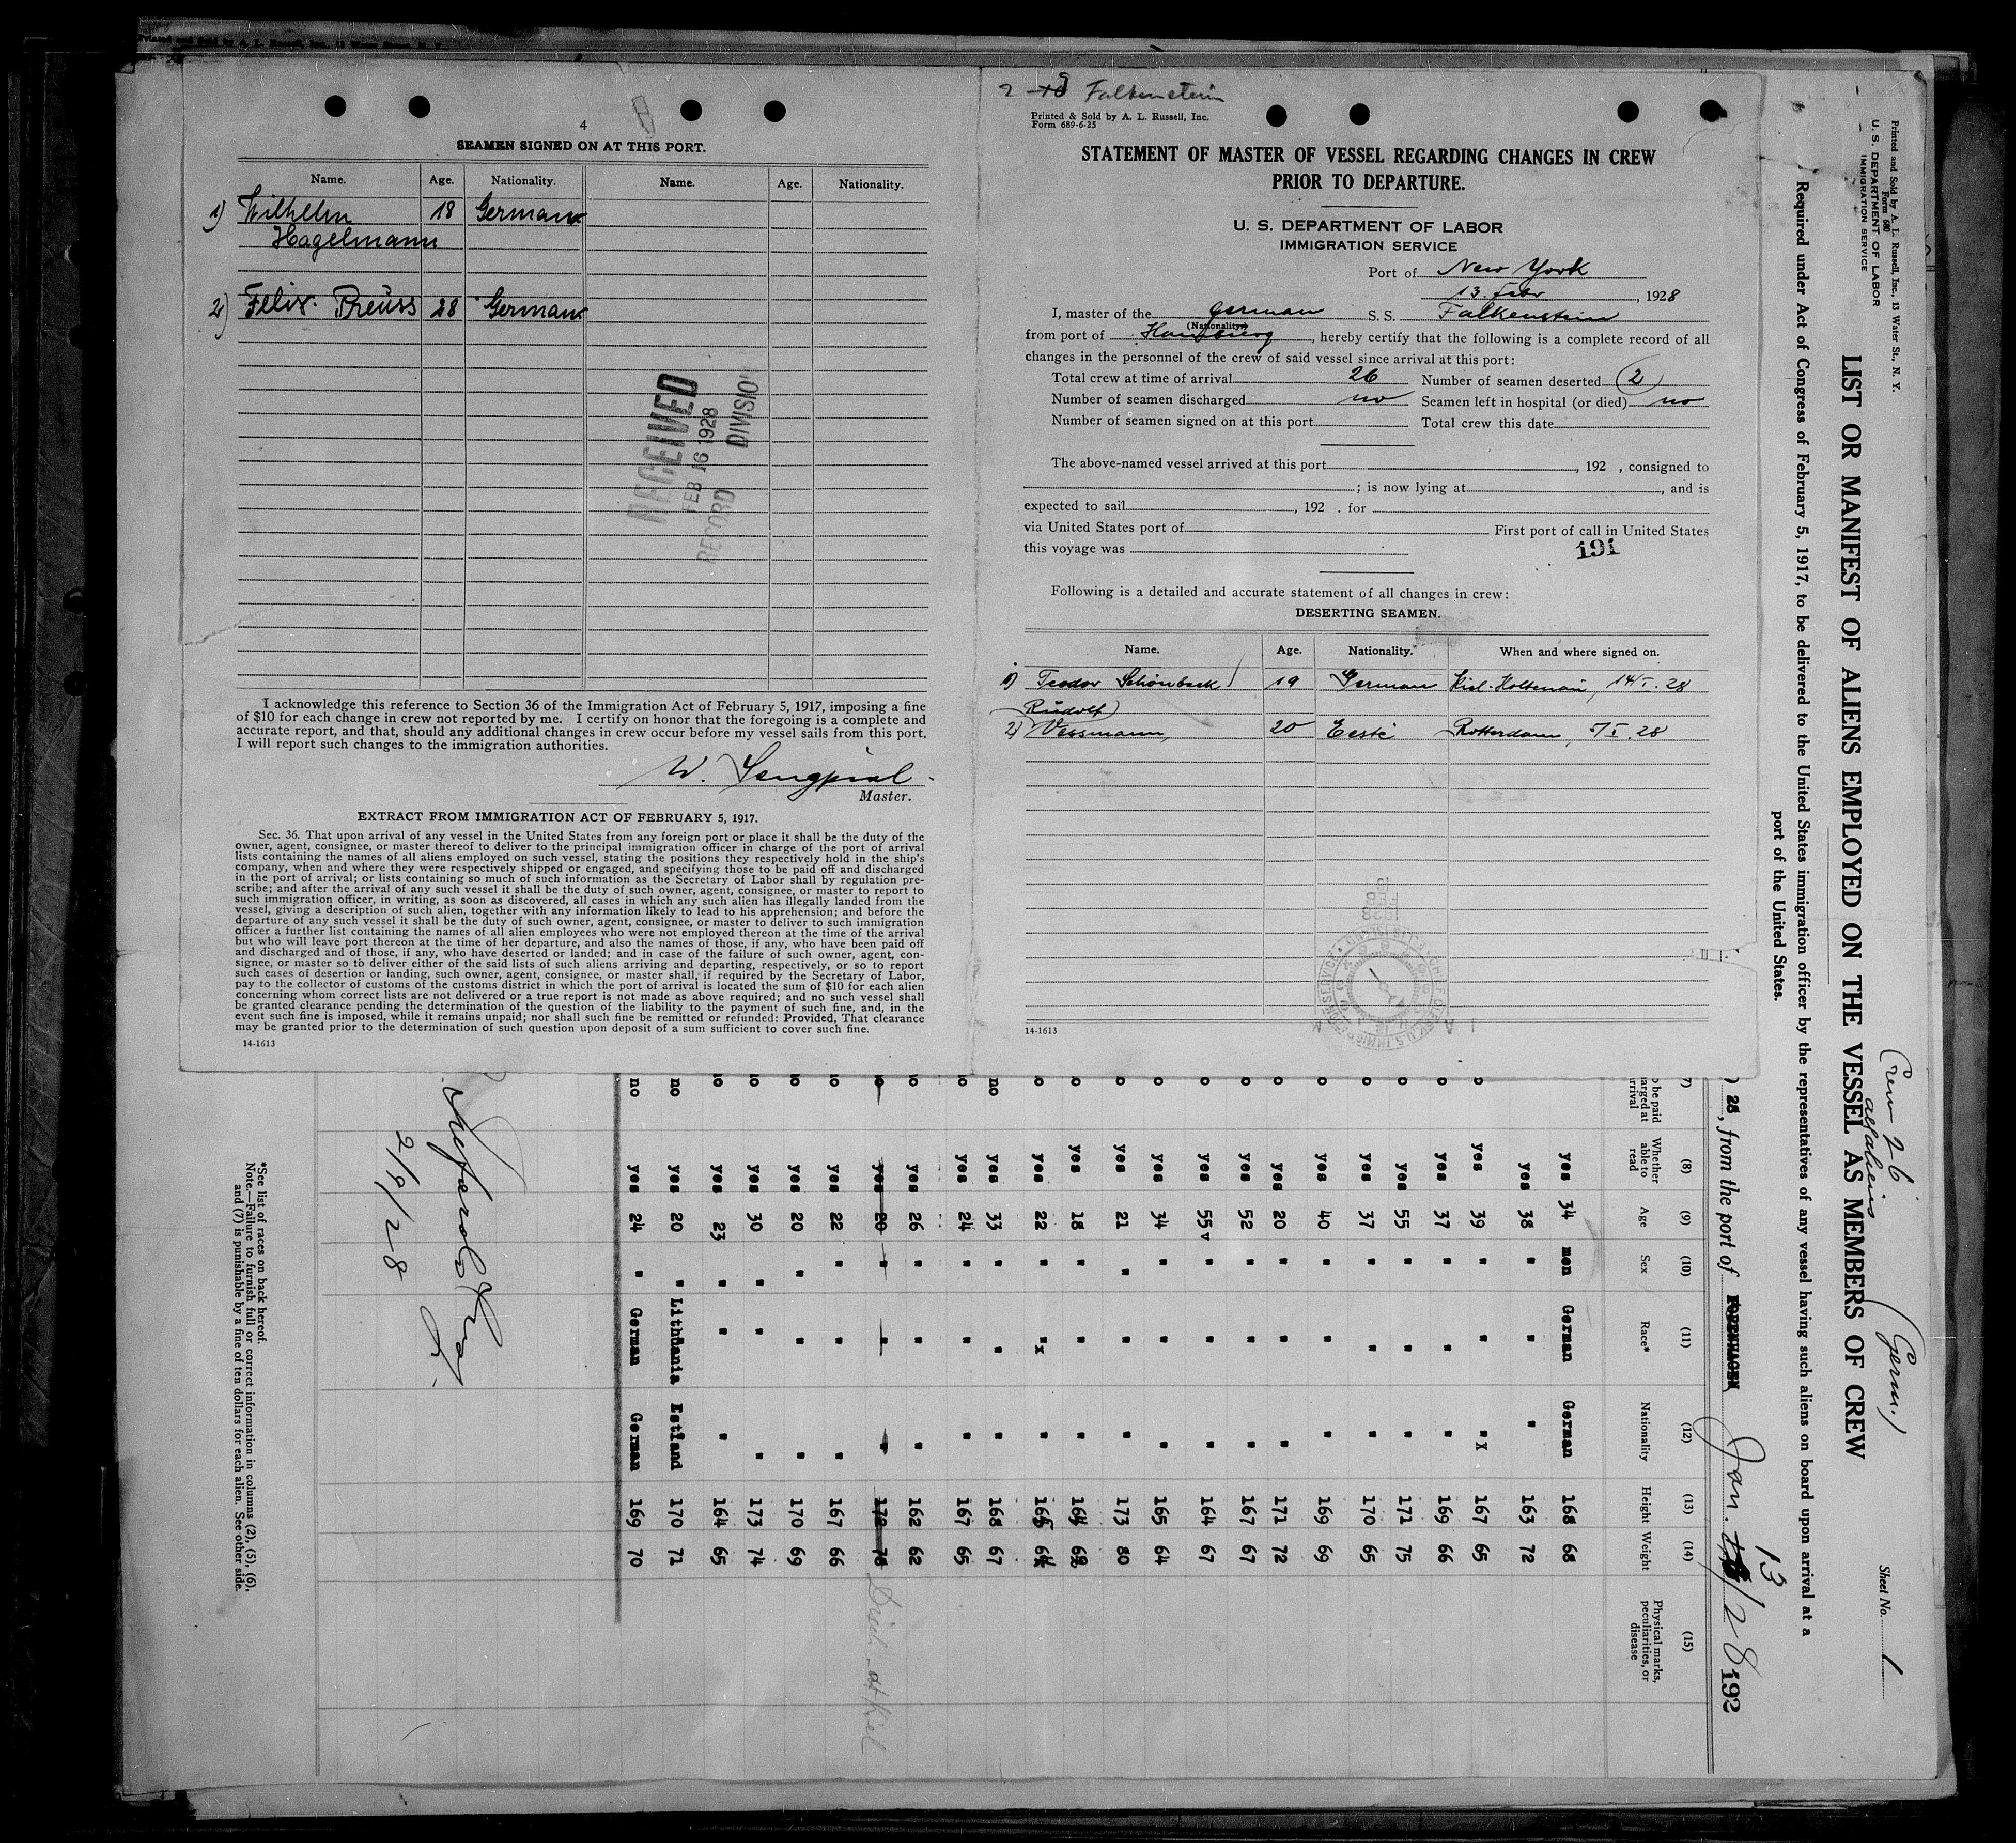 Printed and Sold by A. L. Russell, Inc., 13 Water St., N. Y.
4
SEAMEN SIGNED ON AT THIS PORT.
Name. Age. Nationality. Name. Age. Nationality.
1) Wilhelm 18 German
Hagelmann
2) Felix Preuss 28 German
RECEIVED
FEB 16 1928
RECORD DIVISION
I acknowledge this reference to Section 36 of the Immigration Act of February 5, 1917, imposing a fine
of $10 for each change in crew not reported by me. I certify on honor that the foregoing is a complete and
accurate report, and that, should any additional changes in crew occur before my vessel sails from this port,
I will report such changes to the immigration authorities.
W.
Master.
EXTRACT FROM IMMIGRATION ACT OF FEBRUARY 5, 1917.
Sec. 36. That upon arrival of any vessel in the United States from any foreign port or place it shall be the duty of the
owner, agent, consignee, or master thereof to deliver to the principal immigration officer in charge of the port of arrival
lists containing the names of all aliens employed on such vessel, stating the positions they respectively hold in the ship's
company, when and where they were respectively shipped or engaged, and specifying those to be paid off and discharged
in the port of arrival; or lists containing so much of such information as the Secretary of Labor shall by regulation pre-
scribe; and after the arrival of any such vessel it shall be the duty of such owner, agent, consignee, or master to report to
such immigration officer, in writing, as soon as discovered, all cases in which any such alien has illegally landed from the
vessel, giving a description of such alien, together with any information likely to lead to his apprehension; and before the
departure of any such vessel it shall be the duty of such owner, agent, consignee, or master to deliver to such immigration
officer a further list containing the names of all alien employees who were not employed thereon at the time of the arrival
but who will leave port thereon at the time of her departure, and also the names of those, if any, who have been paid off
and discharged and of those, if any, who have deserted or landed; and in case of the failure of such owner, agent, con-
signee, or master so to deliver either of the said lists of such aliens arriving and departing, respectively, or so to report
such cases of desertion or landing, such owner, agent, consignee, or master shall, if required by the Secretary of Labor,
pay to the collector of customs of the customs district in which the port of arrival is located the sum of $10 for each alien
concerning whom correct lists are not delivered or a true report is not made as above required; and no such vessel shall
be granted clearance pending the determination of the question of the liability to the payment of such fine, and, in the
event such fine is imposed, while it remains unpaid; nor shall such fine be remitted or refunded: Provided, That clearance
may be granted prior to the determination of such question upon deposit of a sum sufficient to cover such fine.
14-1613
2 Falkenstein
Printed & Sold by A. L. Russell, Inc.
Form 689-6-25
STATEMENT OF MASTER OF VESSEL REGARDING CHANGES IN CREW
PRIOR TO DEPARTURE.
U. S. DEPARTMENT OF LABOR
IMMIGRATION SERVICE
Port of New York
13. Febr , 1928
I, master of the german S. S. Falkenstein
(Nationality)
from port of Hamburg , hereby certify that the following is a complete record of all
changes in the personnel of the crew of said vessel since arrival at this port:
Total crew at time of arrival 26 Number of seamen deserted (2)
Number of seamen discharged no Seamen left in hospital (or died) no
Number of seamen signed on at this port Total crew this date
The above-named vessel arrived at this port , 192 , consigned to
; is now lying at , and is
expected to sail , 192 . for
via United States port of First port of call in United States
this voyage was 191
Following is a detailed and accurate statement of all changes in crew:
DESERTING SEAMEN.
Name. Age. Nationality. When and where signed on.
1) Teodor Schönbeck 19 German Kiel-Holtenau, 14/I. 28
Rudolf
2) Wessmann, 20 Eesti Rotterdam, 5/I. 28
13
FEB
1928
14-1613
Printed and Sold by A. L. Russell, Inc., 13 Water St., N. Y.
Form 680
U. S. DEPARTMENT OF LABOR
IMMIGRATION SERVICE
Crew 26 (Germ.)
all aliens
Sheet No. 1
LIST OR MANIFEST OF ALIENS EMPLOYED ON THE VESSEL AS MEMBERS OF CREW
Required under Act of Congress of February 5, 1917, to be delivered to the United States immigration officer by the representatives of any vessel having such aliens on board upon arrival at a
port of the United States.
28, from the port of KOPENHAGEN Jan. 13/28 192
(7) (8) (9) (10) (11) (12) (13) (14) (15)
o be paid arged at rrival Whether able to read Age Sex Race* Nationality Height Weight Physical marks, peculiarities, or disease
yes 34 men German German 168 68
yes 38 " " " 163 72
o yes 39 " " "x 167 65
o yes 37 " " " 169 66
o yes 55 " " " 171 75
o yes 37 " " " 170 65
o yes 40 " " " 169 69
o yes 20 " " " 171 72
o yes 52 " " " 167 67
o yes 55 " " " 164 67
o yes 34 " " " 165 64
o yes 21 " " " 173 80
o yes 18 " " " 164
o yes 22 " "x "
no yes 33 " " " 168 67
o yes 24 " " " 167 65
o yes 26 " " " 162 62
o yes 20 " " " 172 Disch. at Kiel
o yes 22 " " " 167 66
o yes 20 " " " 170 69
o yes 30 " " " 173 74
o yes 23 " " " 164 65
no yes 20 " Lithuania Estland 170 71
no yes 24 " German German 169 70
2/9/28
*See list of races on back hereof.
Note.—Failure to furnish full or correct information in columns (2), (5), (6),
and (7) is punishable by a fine of ten dollars for each alien. See other side.